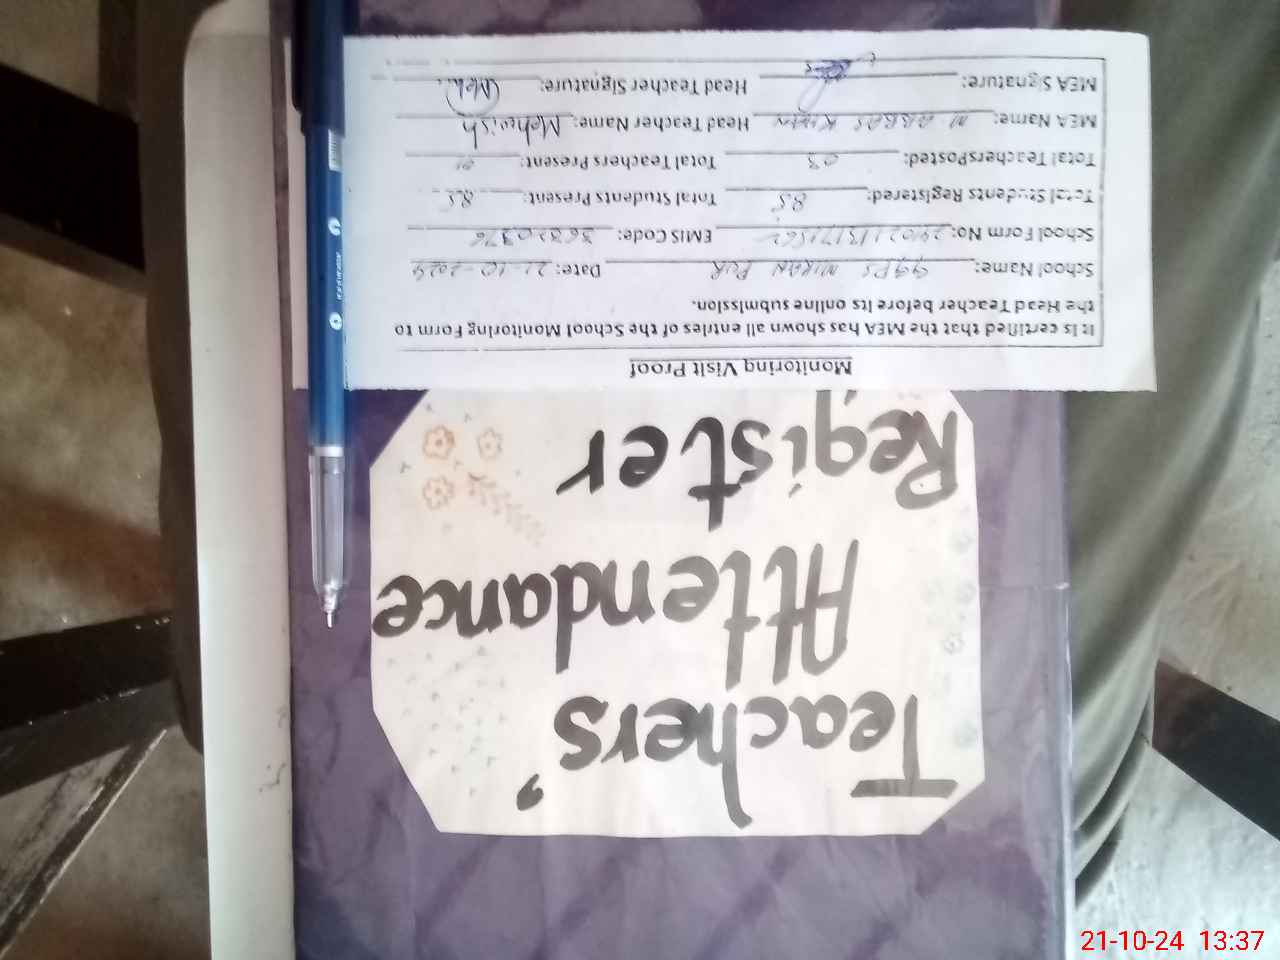 Monitoring Visit Proof
It is certified that the MEA has shown all entries of the School Monitoring Form to
the Head Teacher before its online submission.
School Name: GGPS MIRAN PUR Date: 21-10-2024
School Form No: EMIS Code:
Total Students Registered: 85 Total Students Present: 85
Total Teachers Posted: 03 Total Teachers Present:
MEA Name: M ABBAS KHAN Head Teacher Name: Mehwish
MEA Signature: Head Teacher Signature: Meh..
Teachers'
Attendance
Register
21-10-24 13:37